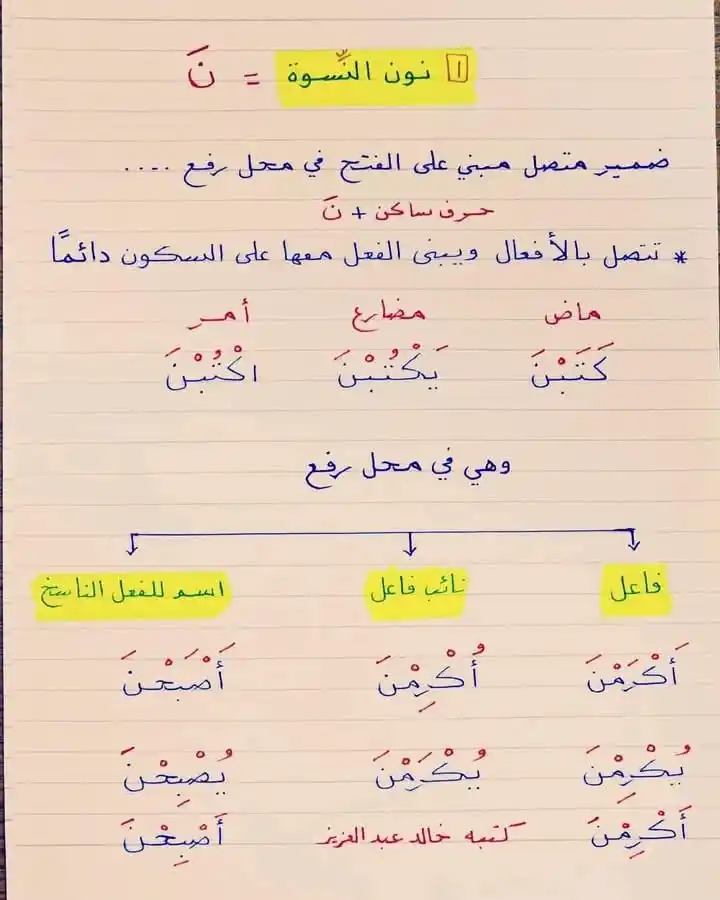 ١ نون النِّسوة = نَ
ضمير متصل مبني على الفتح في محل رفع ....
حرف ساكن + نَ
* تتصل بالأفعال ويبنى الفعل معها على السكون دائمًا
ماض مضارع أمر
كَتَبْنَ يَكْتُبْنَ اكْتُبْنَ
وهي في محل رفع
فاعل نائب فاعل اسم للفعل الناسخ
أَكْرَمْنَ أُكْرِمْنَ أَصْبَحْنَ
يُكْرِمْنَ يُكْرَمْنَ يُصْبِحْنَ
أَكْرِمْنَ كتبه خالد عبد العزيز أَصْبِحْنَ